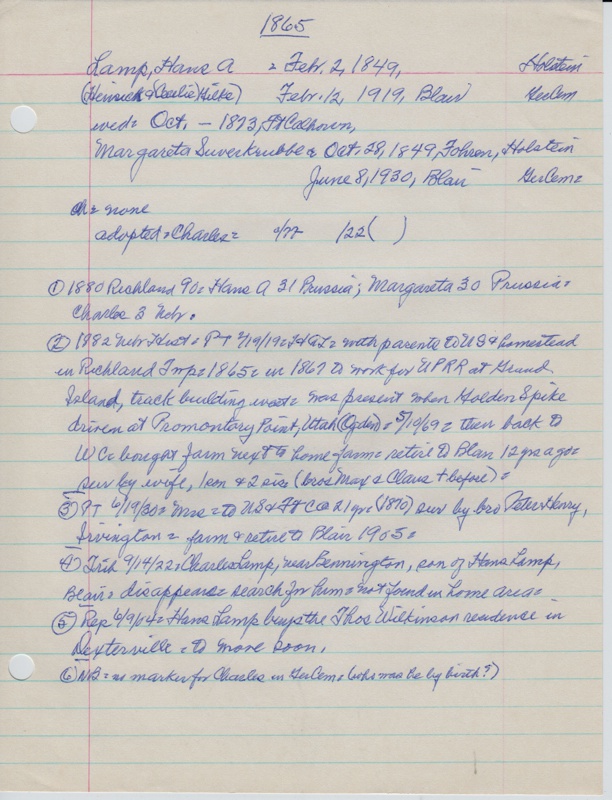 1865
Lamp, Hans A = Feb. 2, 1849, Holstein
(Heinrich & Cecilie Hilke) Feb. 12, 1919, Blair GerCem
wed = Oct. - 1873, Ft Calhoun,
Margareta Suverkrubbe = Oct. 28, 1849, Fohren, Holstein
June 8, 1930, Blair GerCem =
ch = none
adopted = Charles = c/77 /22 ( )
① 1880 Richland 90 = Hans A 31 Prussia; Margareta 30 Prussia =
Charles 3 Nebr.
② 1882 Nebr Hist = PT 2/19/19 = H & I = with parents to US & homestead
in Richland Twp = 1865 = in 1867 to work for UPRR at Grand
Island, track building west = was present when Golden Spike
driven at Promontory Point, Utah (Ogden) = 5/19/69 = then back to
WC = bought farm next to home farm = retire to Blair 12 yrs ago =
sur by wife, 1 son & 2 sis (bros Max & Claus + before) =
③ PT 6/19/30 = Mrs = to US & Ft C @ 21 yr = (1870) sur by bro Peter Henry,
Irvington = farm & retire to Blair 1905 =
④ Trib 9/14/22 = Charles Lamp, near Bennington, son of Hans Lamp,
Blair = disappears = search for him = not found in home area =
⑤ Rep 6/9/04 = Hans Lamp buys the Thos Wilkinson residence in
Dexterville = to move soon.
⑥ NB = no marker for Charles in GerCem = (who was he by birth?)